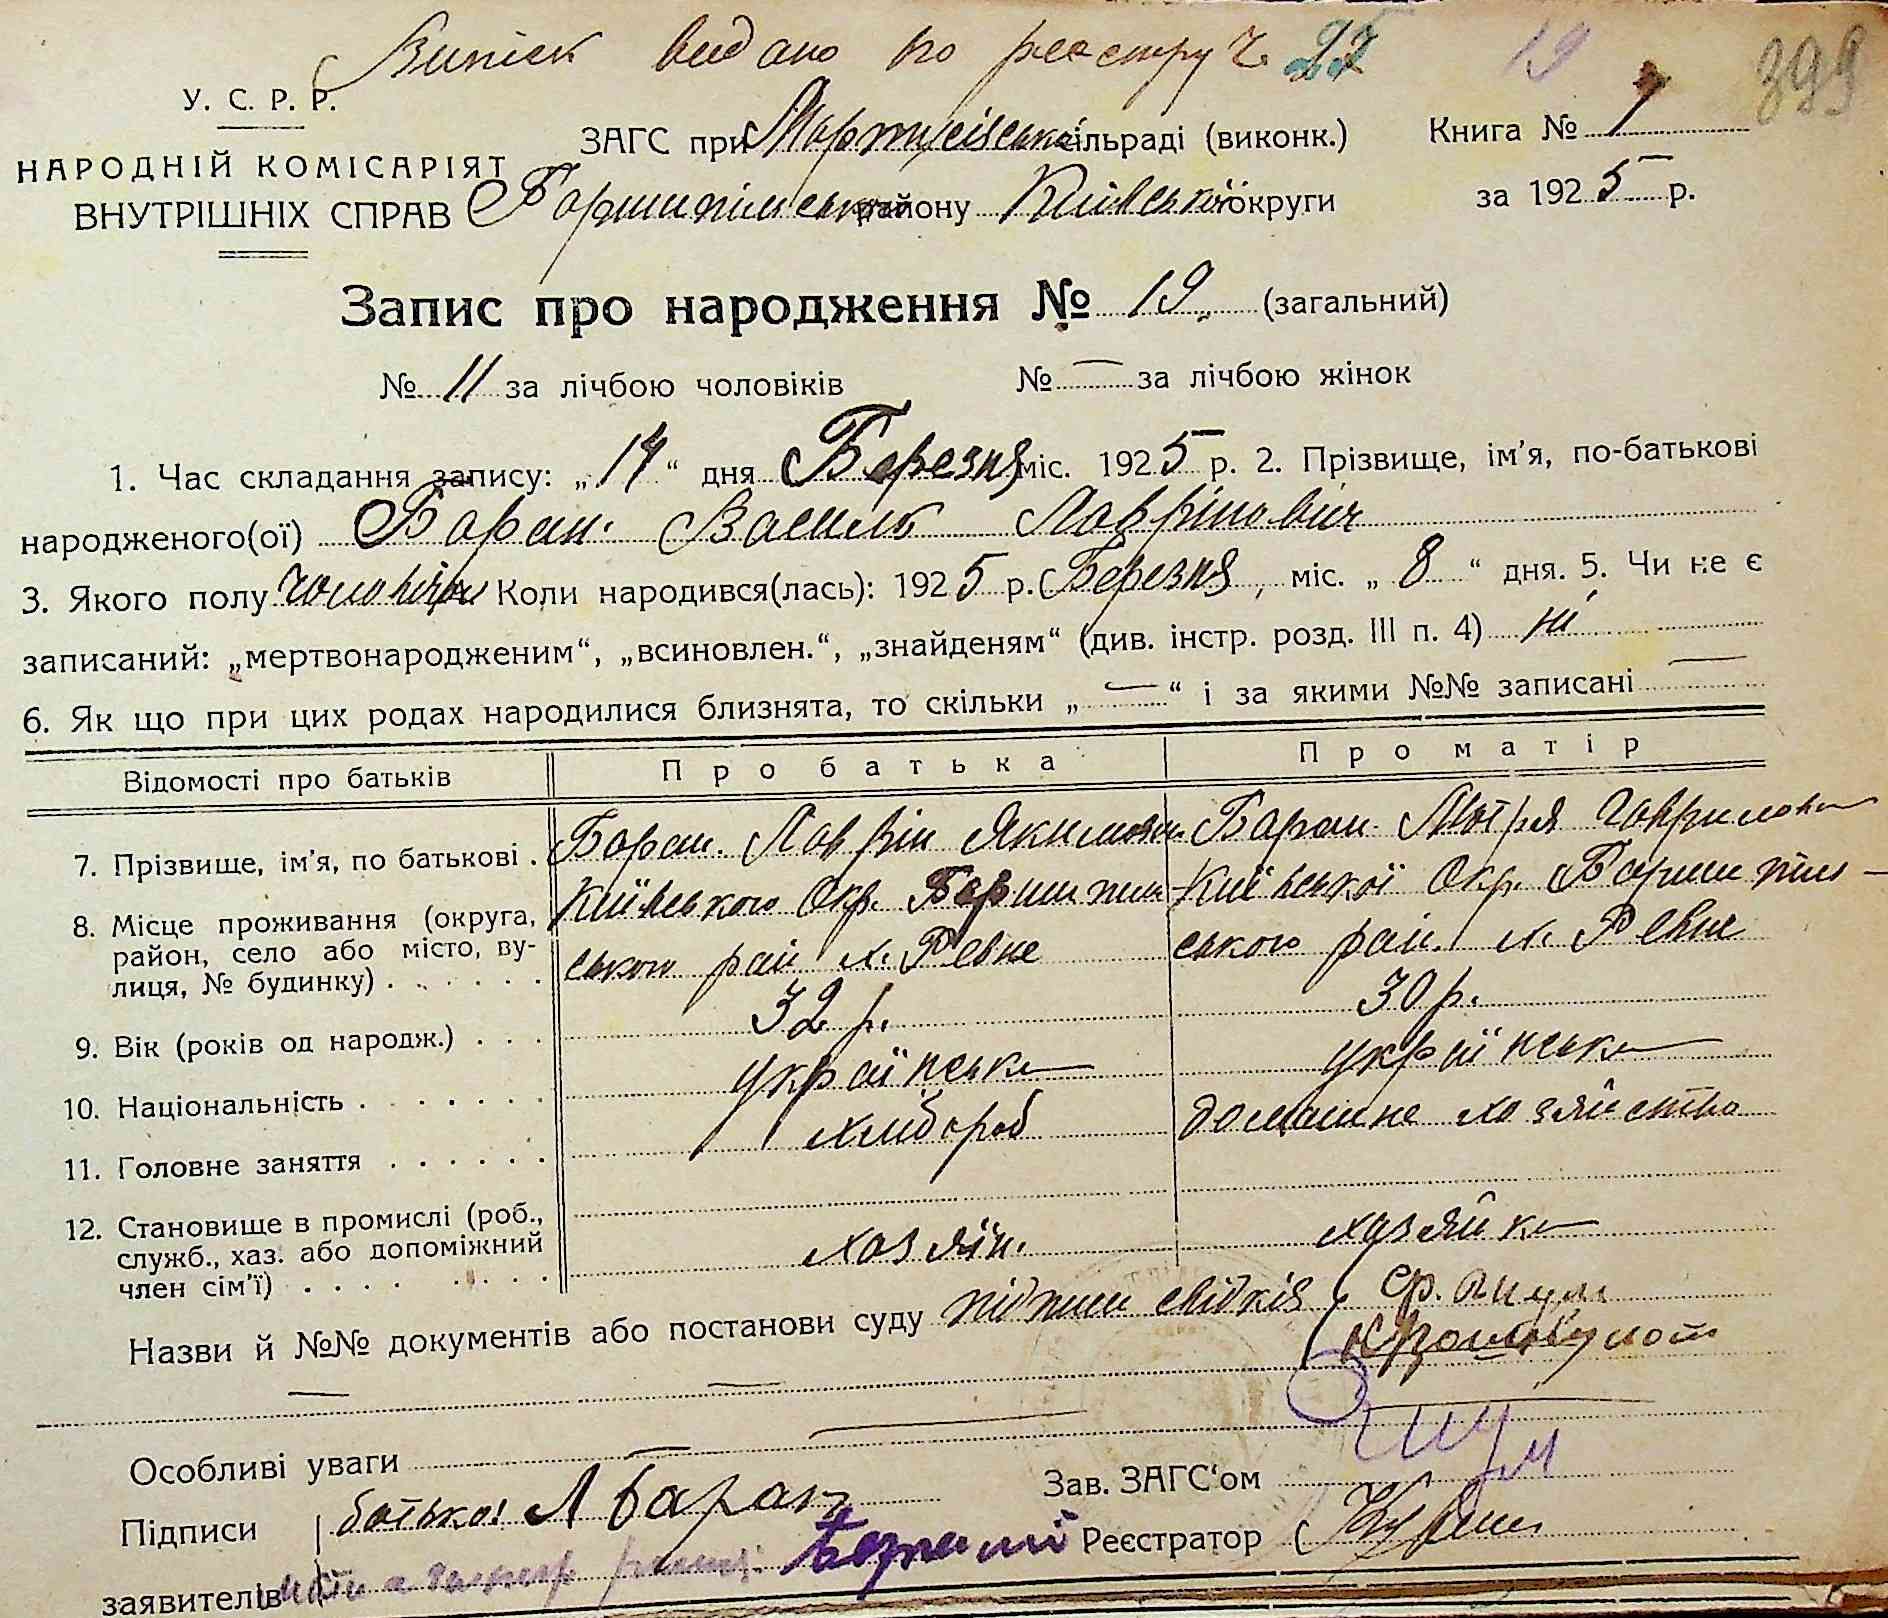 Випіск видано по реєстру Ч. 25 19 399
У. С. Р. Р.
ЗАГС при Мартусівській сільраді (виконк.) Книга № 1
НАРОДНІЙ КОМІСАРІЯТ
ВНУТРІШНІХ СПРАВ
Боришпільського району Київської округи за 1925 р.
Запис про народження № 19 (загальний)
№ 11 за лічбою чоловіків № — за лічбою жінок
1. Час складання запису: „14“ дня Березня міс. 1925 р. 2. Прізвище, ім’я, по-батькові
народженого(ої) Баран Василь Лаврінович
3. Якого полу чоловічого Коли народився(лась): 1925 р. Березня, міс. „8“ дня. 5. Чи не є
записаний: „мертвонародженим“, „всиновлен.“, „знайденям“ (див. інстр. розд. III п. 4) ні
6. Як що при цих родах народилися близнята, то скільки „—“ і за якими №№ записані —
Відомості про батьків Про батька Про матір
7. Прізвище, ім’я, по батькові . Баран Лаврін Якимович Баран Мотря Гаврилова
8. Місце проживання (округа, район, село або місто, вулиця, № будинку) . . . . . . Київського Окр. Боришпіль- Київської Окр. Боришпіль-
ського рай с. Ревне ського рай. с. Ревне
9. Вік (років од народж.) . . . 32 р. 30 р.
10. Національність . . . . . . . українська українська
11. Головне заняття . . . . . . хлібороб домашне хозяйство
12. Становище в промислі (роб., служб., хаз. або допоміжний член сім’ї) . . . . . . . . хозяїн. хозяйка
Назви й №№ документів або постанови суду підписи свідків
— —
Особливі уваги —
Зав. ЗАГС‘ом
Підписи батько: Л Баран
Реєстратор
заявителів